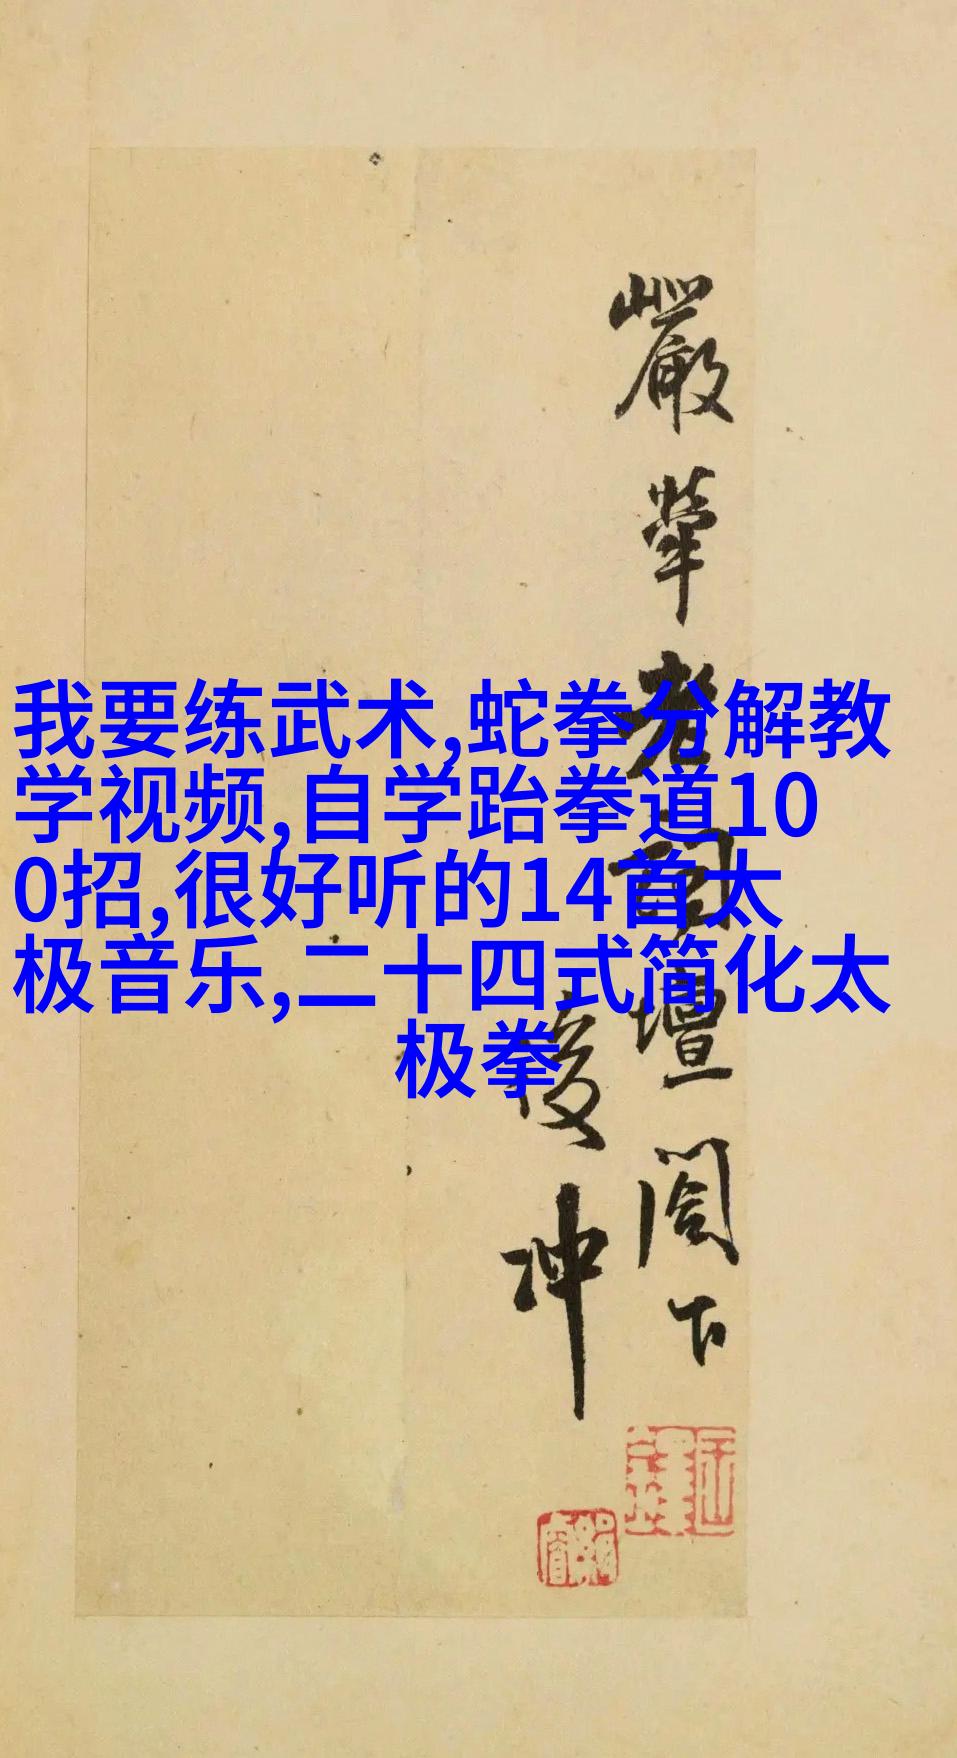 我要练武术,蛇拳分解教
学视频,自学跆拳道10
0招,很好听的14首太
极音乐,二十四式简化太
极拳
嚴犖老詞壇閣下
夜冲